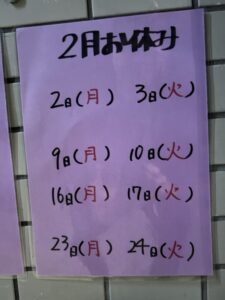 2月お休み
2日(月) 3日(火)
9日(月) 10日(火)
16日(月) 17日(火)
23日(月) 24日(火)